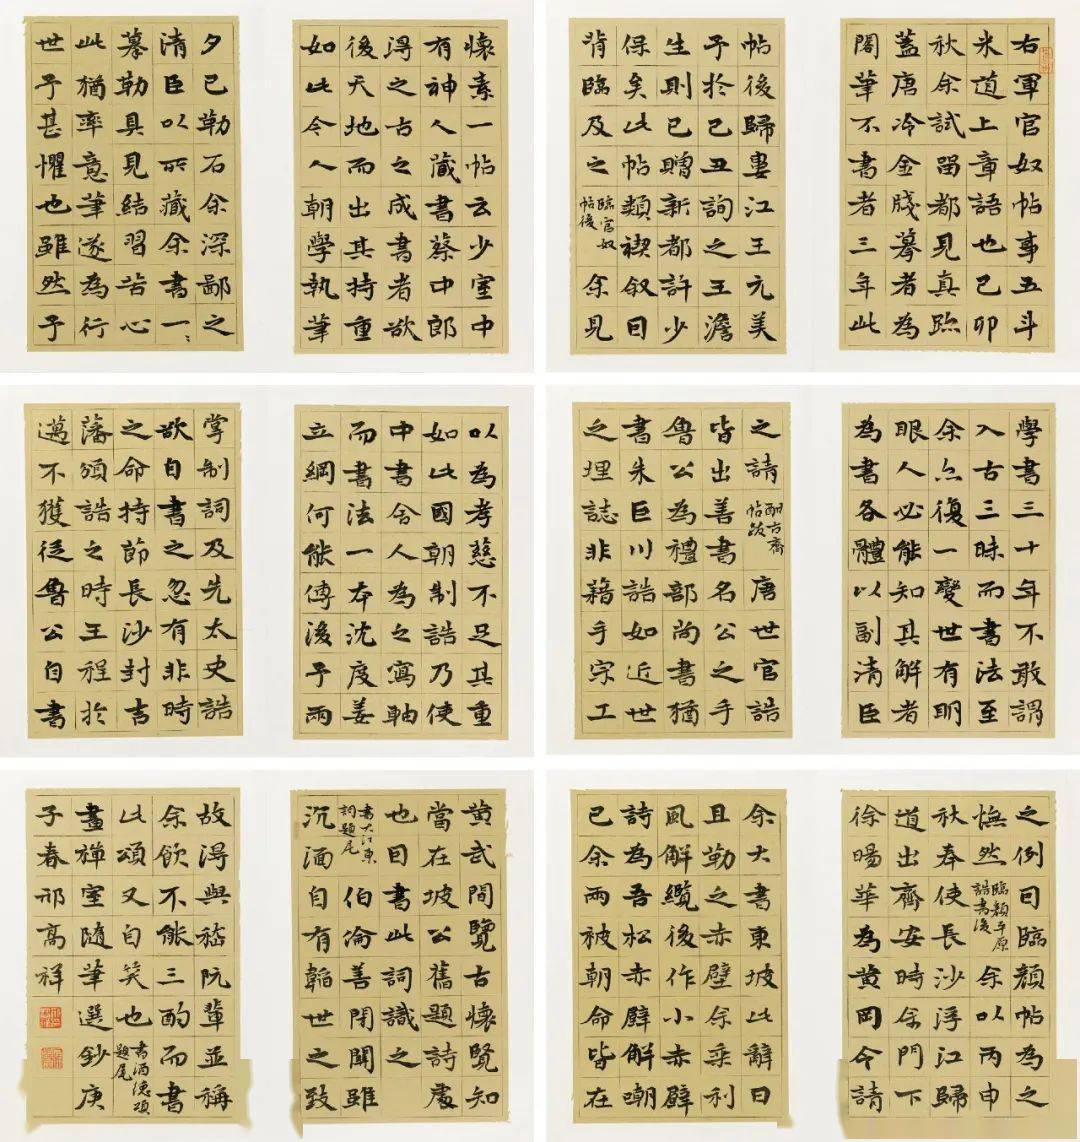 右軍官奴帖事五斗
米道上章語也己卯
秋余試留都見真跡
蓋唐冷金牋摹者為
閣筆不書者三年此
帖後歸婁江王元美
予於己丑詢之王澹
生則已贈新都許少
保矣此帖類禊叙因
背臨及之臨官奴帖後余見
懷素一帖云少室中
有神人藏書蔡中郎
得之古之成書者欲
後天地而出其持重
如此今人朝學執筆
夕已勒石余深鄙之
清臣以所藏余書一〻
摹勒具見結習苦心
此猶率意筆遂為行
世予甚懼也雖然予
學書三十年不敢謂
入古三昧而書法至
余亦復一變世有明
眼人必能知其解者
為書各體以副清臣
之請酣古齋帖跋唐世官誥
皆出善書名公之手
魯公為禮部尚書猶
書朱巨川誥如近世
之埋誌非籍手宗工
以為孝慈不足其重
如此國朝制誥乃使
中書舍人為之寫軸
而書法一本沈度姜
立綱何能傳後予兩
掌制詞及先太史誥
欲自書之忽有非時
之命持節長沙封吉
藩頒誥之時王程於
邁不獲從魯公自書
之例因臨顏帖為之
憮然臨顏平原誥書後余以丙申
秋奉使長沙浮江歸
道出齊安時余門下
徐暘華為黃岡令請
余大書東坡此辭因
且勒之赤壁余乘利
風解纜後作小赤壁
詩為吾松赤壁解嘲
已余兩被朝命皆在
黃武間覽古懷賢知
當在坡公舊題詩處
也因書此詞識之
書大江東詞題尾伯倫善閉關雖
沉湎自有韜世之致
故得與嵇阮輩並稱
余飲不能三酌而書
此頌又自笑也書酒德頌題尾
畫禪室隨筆選鈔庚
子春邢高祥